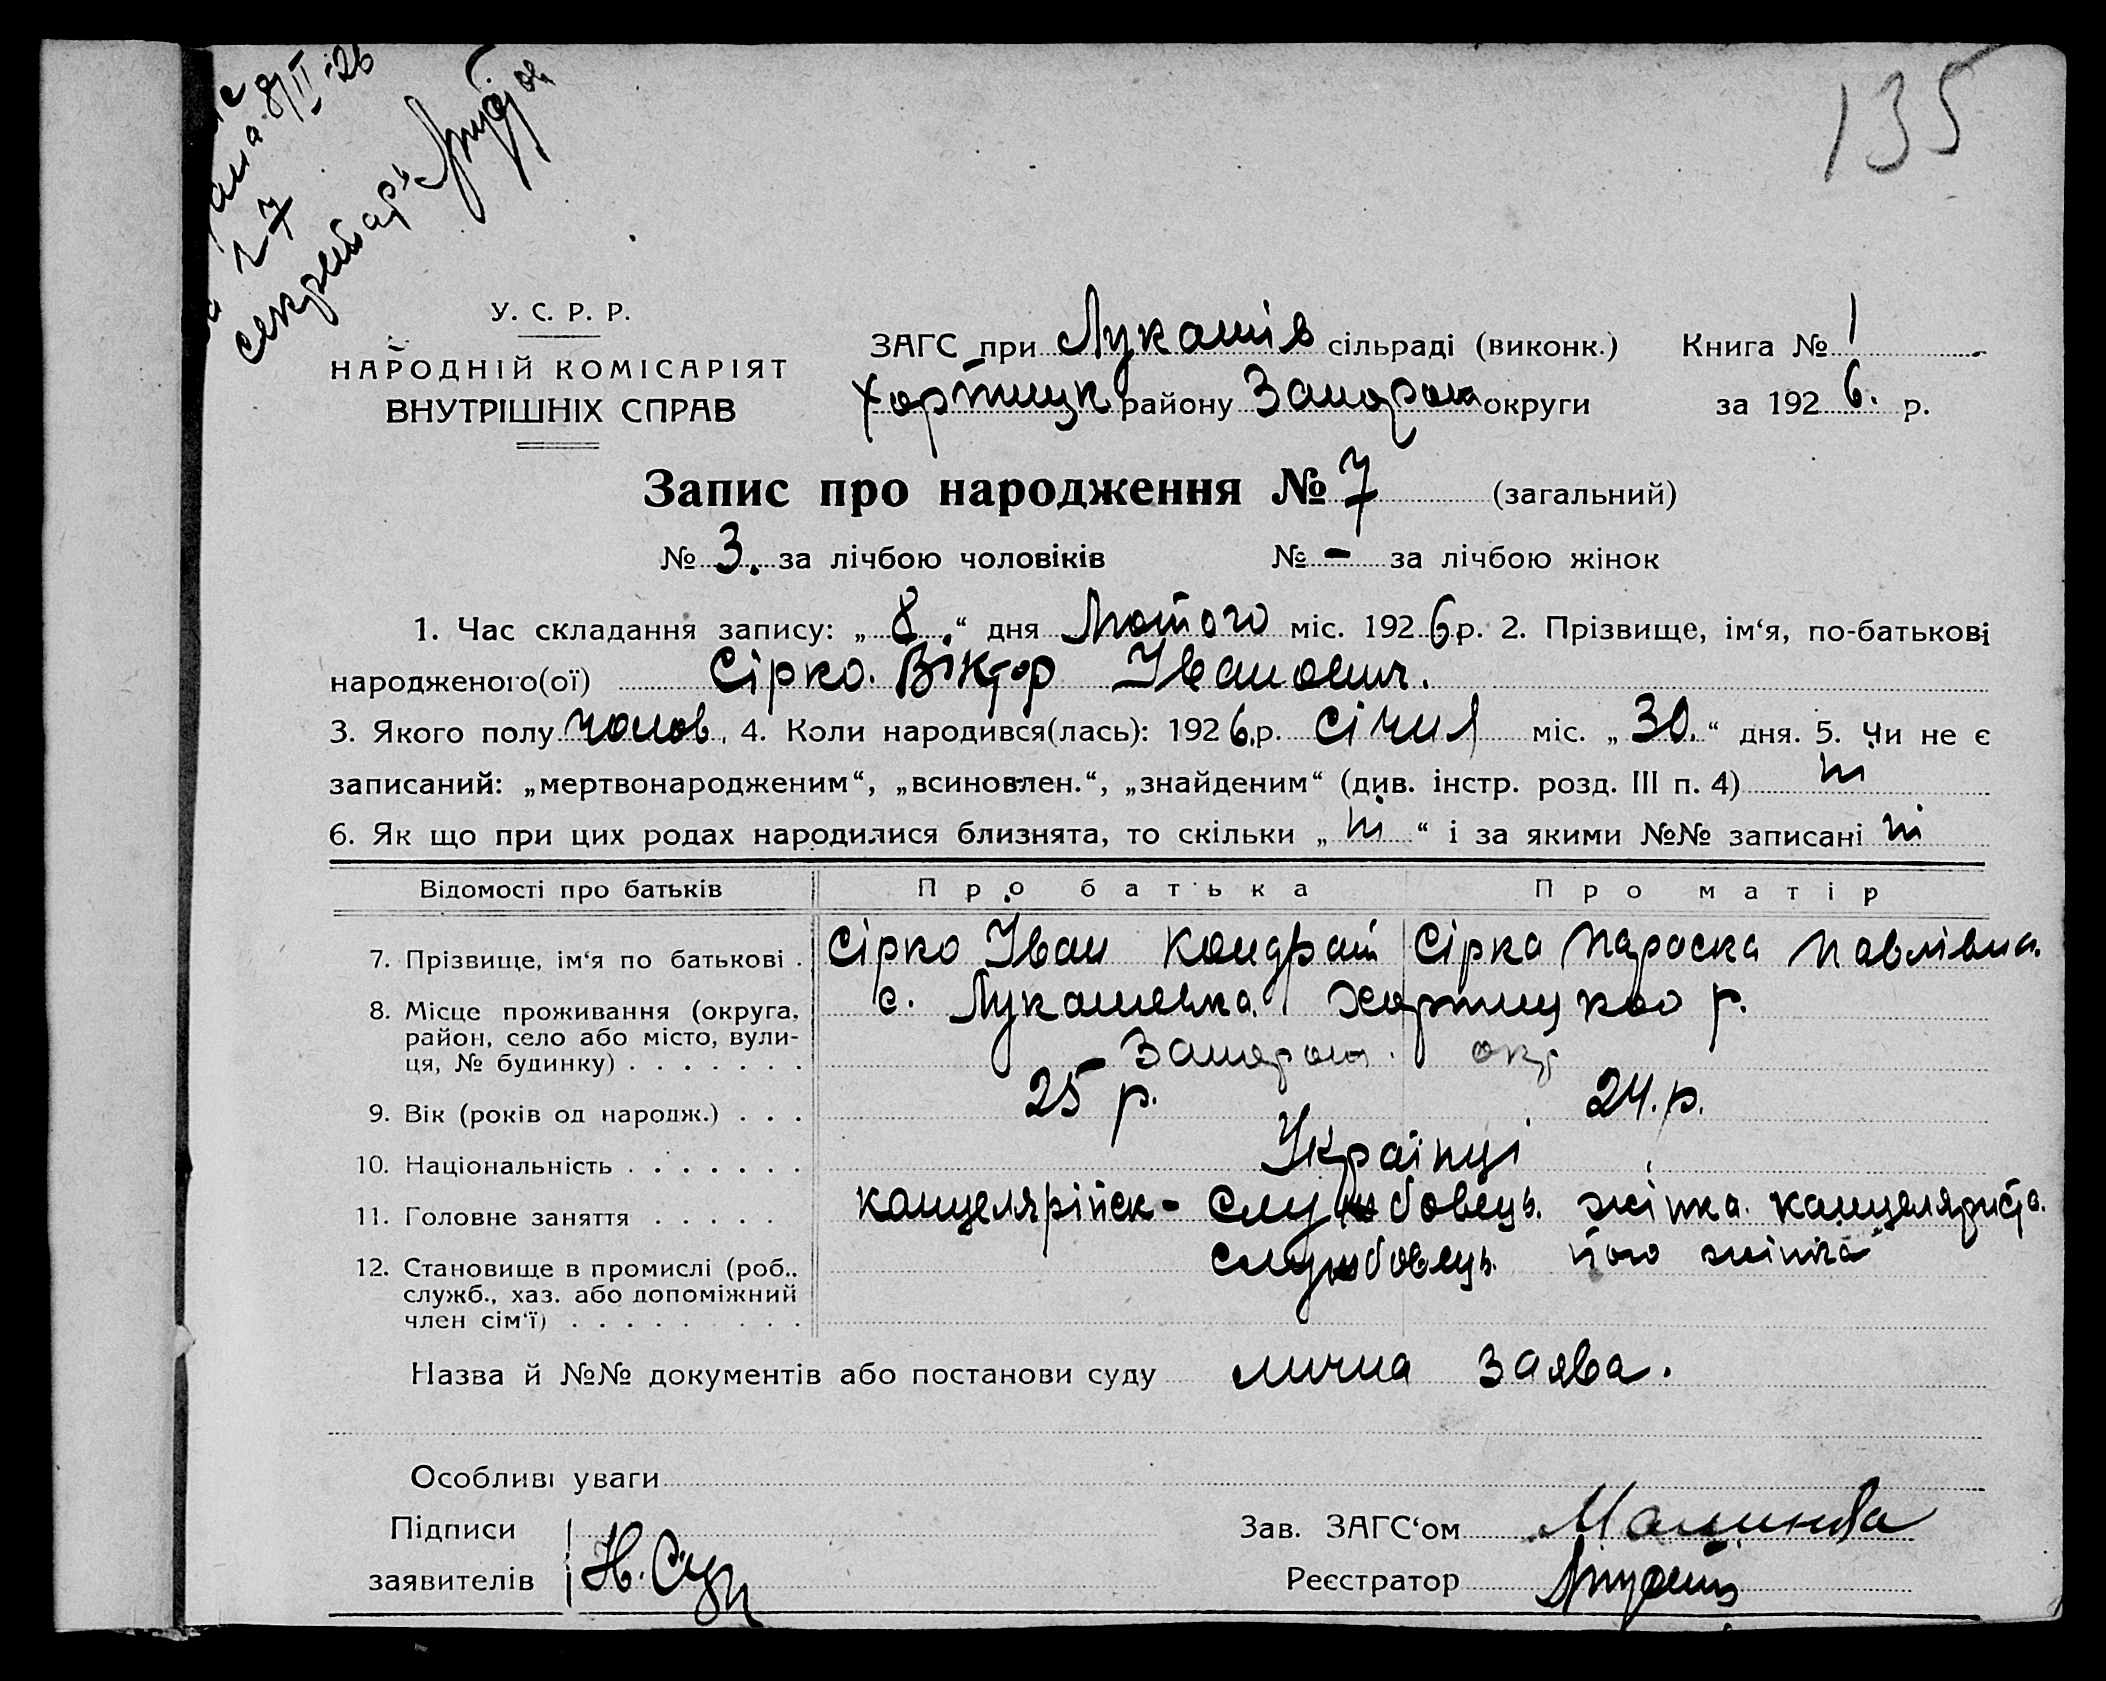 8/II-26
27
секретарь
135
У. С. Р. Р.
НАРОДНІЙ КОМІСАРІЯТ
ВНУТРІШНІХ СПРАВ
ЗАГС при Лукашів сільраді (виконк.) Книга № 1
Хортицк району Запорож округи за 1926. р.
Запис про народження № 7 (загальний)
№ 3. за лічбою чоловіків № - за лічбою жінок
1. Час складання запису: „8.“ дня Лютого міс. 1926 р. 2. Прізвище, ім‘я, по-батькові
народженого(ої) Сірко. Віктор Іванович.
3. Якого полу чолов. 4. Коли народився(лась): 1926 р. Січня міс. „30.“ дня. 5. Чи не є
записаний: „мертвонародженим“, „всиновлен.“, „знайденим“ (див. інстр. розд. III п. 4) ні
6. Як що при цих родах народилися близнята, то скільки „ні“ і за якими №№ записані ні
Відомості про батьків Про батька Про матір
7. Прізвище, ім‘я по батькові . Сірко Іван Кондрат Сірка Параска Павлівна.
8. Місце проживання (округа, с. Лукашевка. Хортицкоо р.
район, село або місто, вули-
ця, № будинку) . . . . . . . Запорож. окр
9. Вік (років од народж.) . . . 25 р. 24. р.
10. Національність . . . . . . . Українці
11. Головне заняття . . . . . канцелярійск- службовець. жінка. канцеляриста.
12. Становище в промислі (роб.. службовець. його жінка
служб., хаз. або допоміжний
член сім‘ї) . . . . . . . . .
Назва й №№ документів або постанови суду лична заява.
Особливі уваги
Підписи Зав. ЗАГС‘ом
заявителів Реєстратор